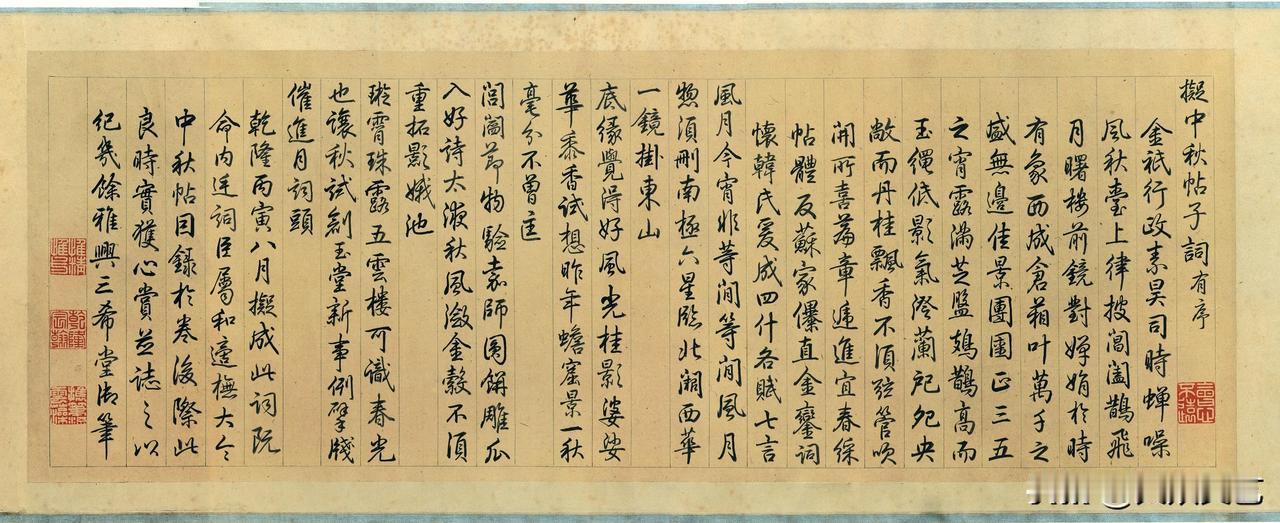 擬中秋帖子詞有序
金祇行政素昊司時蟬噪
風秋臺上律披閶闔鵲飛
月曙樓前鏡對嬋娟於時
有象西成倉箱叶萬千之
盛無邊佳景團圞正三五
之宵露滿芝盤鳷鵲高而
玉繩低影氣澄蘭戺兜央
敞而丹桂飄香不須弦管吹
開所喜篇章遞進宜春綵
帖體反蘇家儤直金鑾詞
懷韓氏爰成四什各賦七言
風月今宵非等閒等閒風月
總須刪南極六星臨北闕西華
一鏡掛東山
底緣覺得好風光桂影婆娑
華黍香試想昨年蟾窟景一秋
毫分不曾
閶闔節物驗嘉師圓餅雕瓜
入好詩太液秋風潋金縠不須
重拓影娥池
璇霄珠露五雲樓可識春光
也讓秋試創玉堂新事例擘牋
催進月詞頭
乾隆丙寅八月擬成此詞既
命內廷詞臣屬和適撫大令
中秋帖因錄於卷後際此
良時實獲心賞並誌之以
紀幾餘雅興三希堂御筆